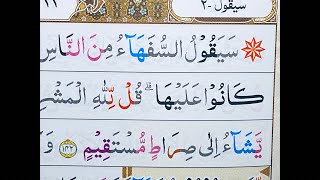 سَيَقُوْلُ ٢
سَيَقُوْلُ السُّفَهَآءُ مِنَ النَّاسِ
كَانُوْا عَلَيْهَا ؕ قُلْ لِّلّٰهِ الْمَشْرِ
يَّشَآءُ اِلٰى صِرَاطٍ مُّسْتَقِيْمٍ ﴿۱۴۲﴾ وَ